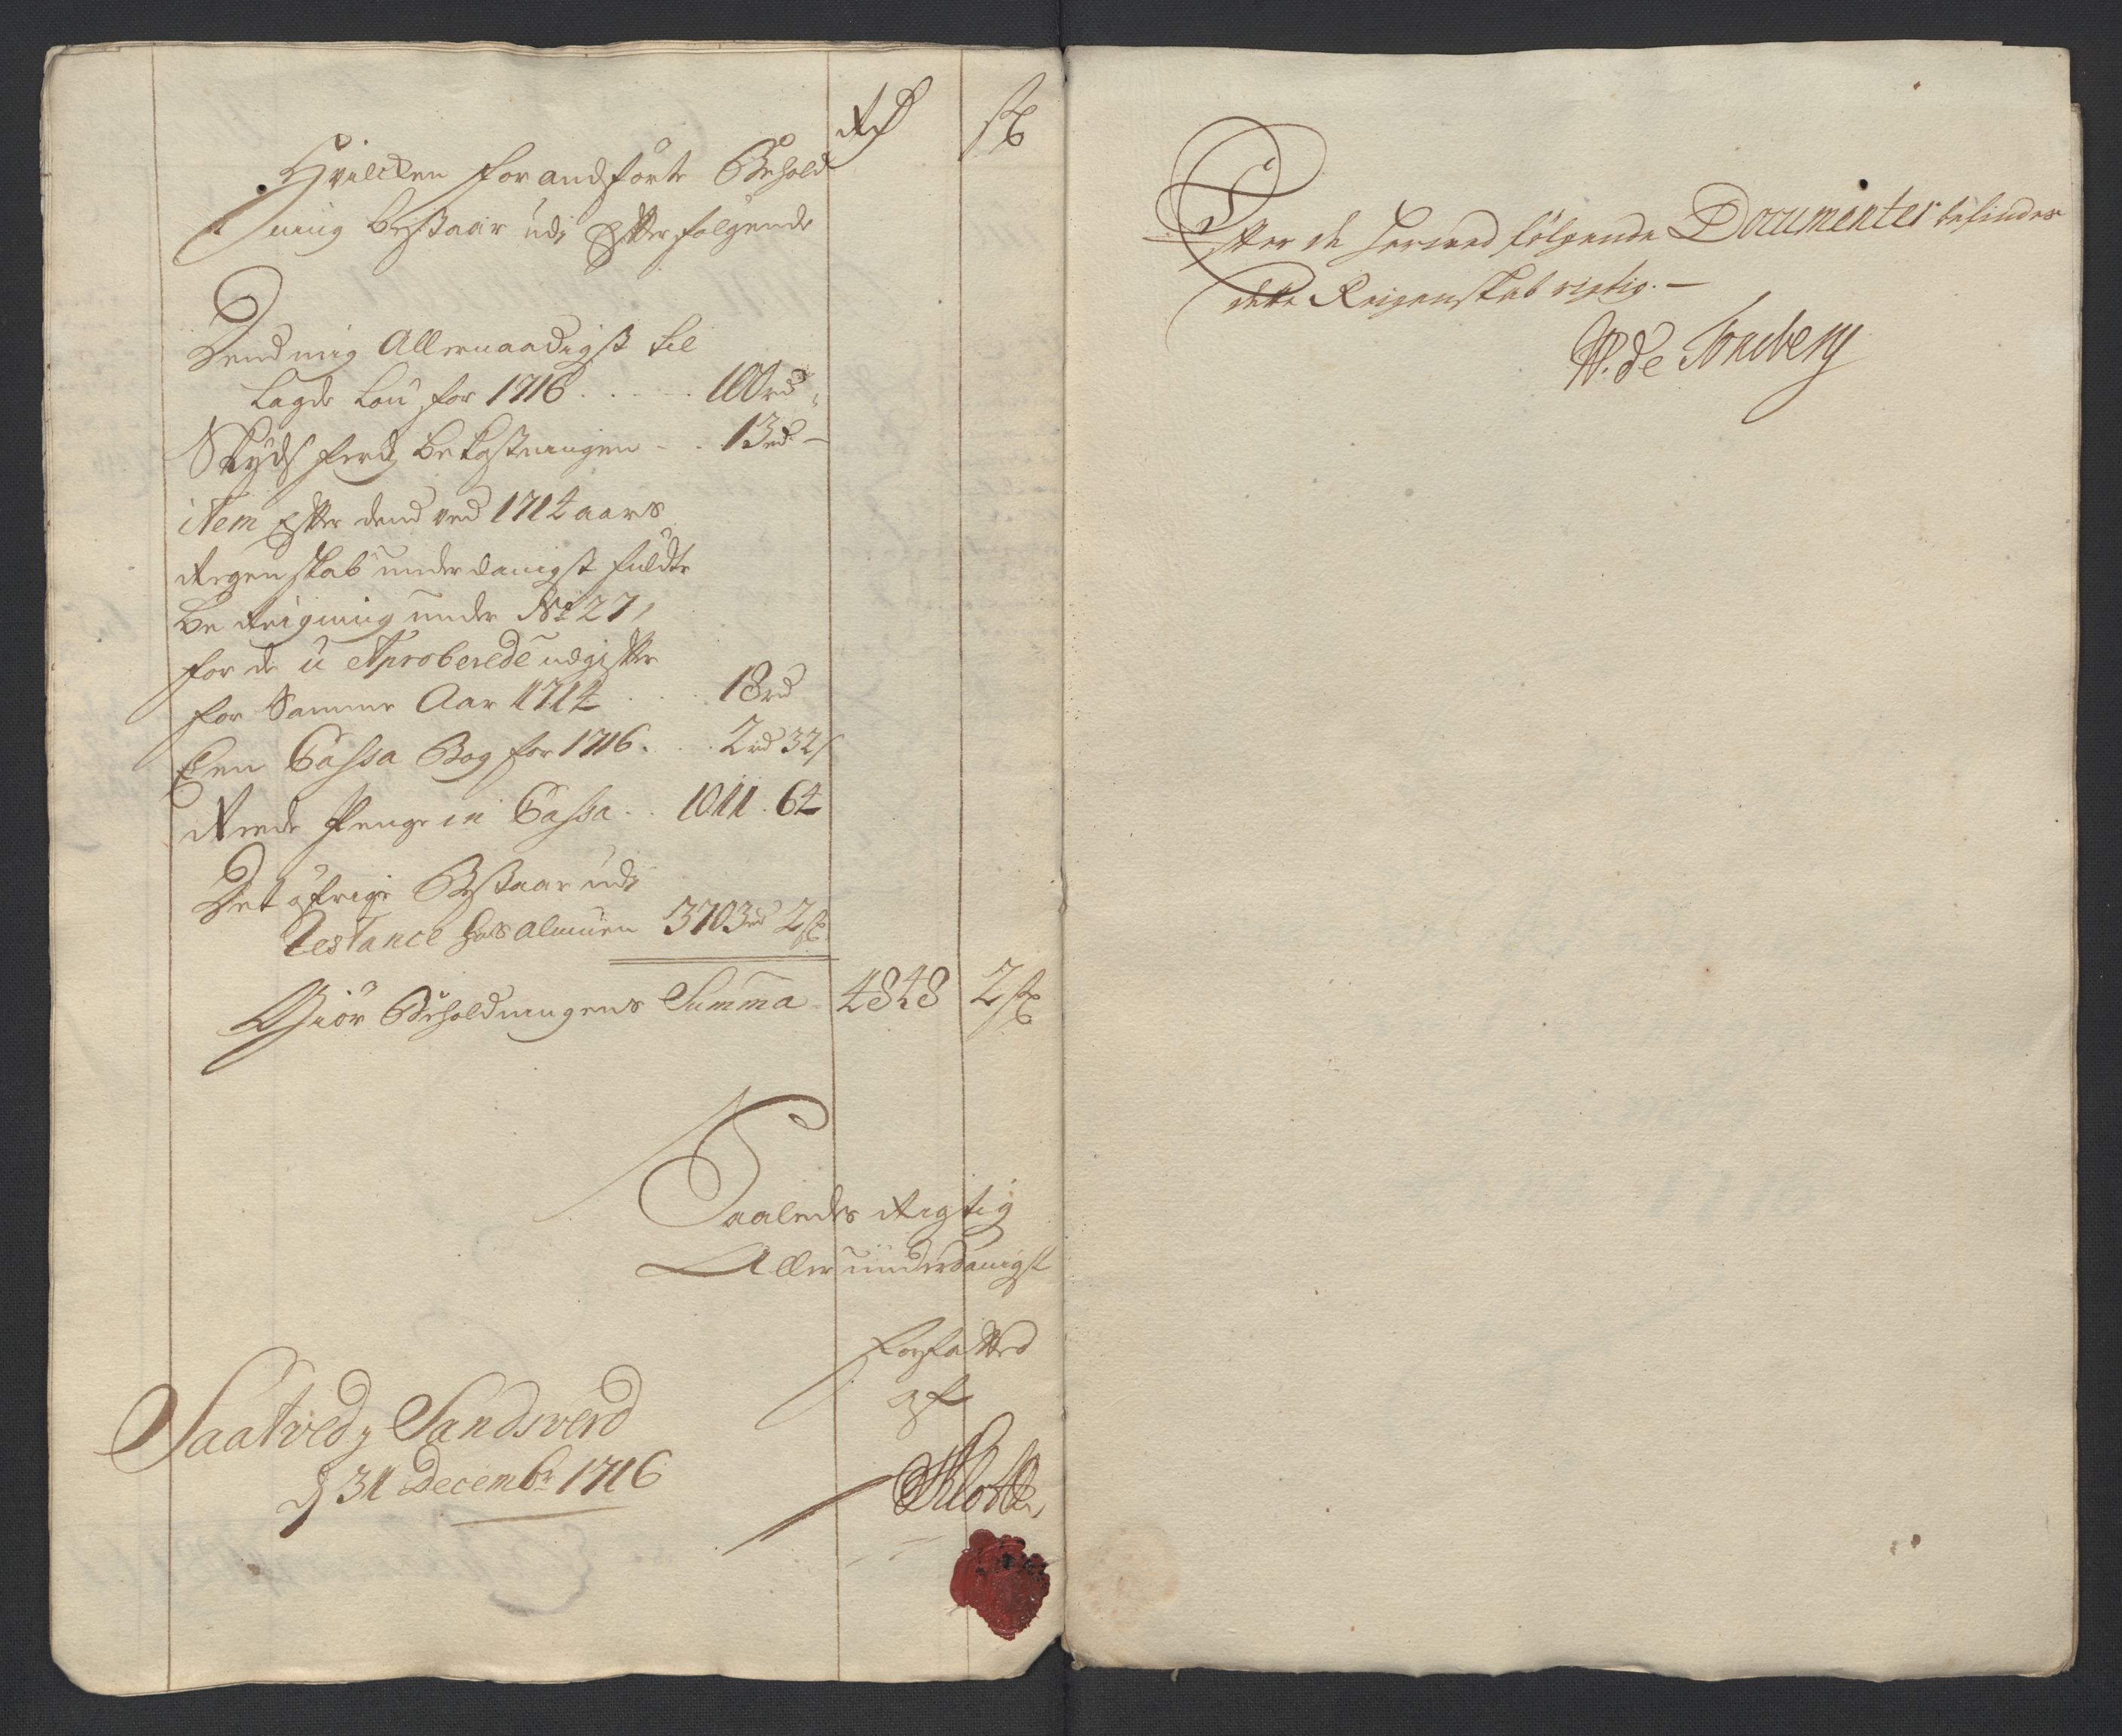 Rd ß
Hvilcken for andførte Behold
ning bestaar udj Efterfølgende
Dend mig Allernaadigst til
Lagde Løn for 1716 . . . . 100 rd
Skyds ferdz bekostningen . . 13 rd —
item Efter dend ved 1714 aars
Regenskab underdanigst fuldte
be Reigning under No 27,
for de u Aproberede udgifter
for Samme Aar 1714 . . . 18 rd
Een Cassa Bog for 1716 . . . 2 rd 32 ß
Rede Penge in Cassa . . 1011 . 64
Det øfrige Bestaar udj
Restance hos almuen 3703 rd 2 ß
Giør Beholdningens Summa 4848 2 ß
Saaledes Rigtig
Allerunderdanigst
forfatted
af
Saatved j Sandsverd
d 31 Decembr 1716
Efter de hermed følgende Documenter befindes
dette Reigenskab rigtig. —
W. de Tonsberg